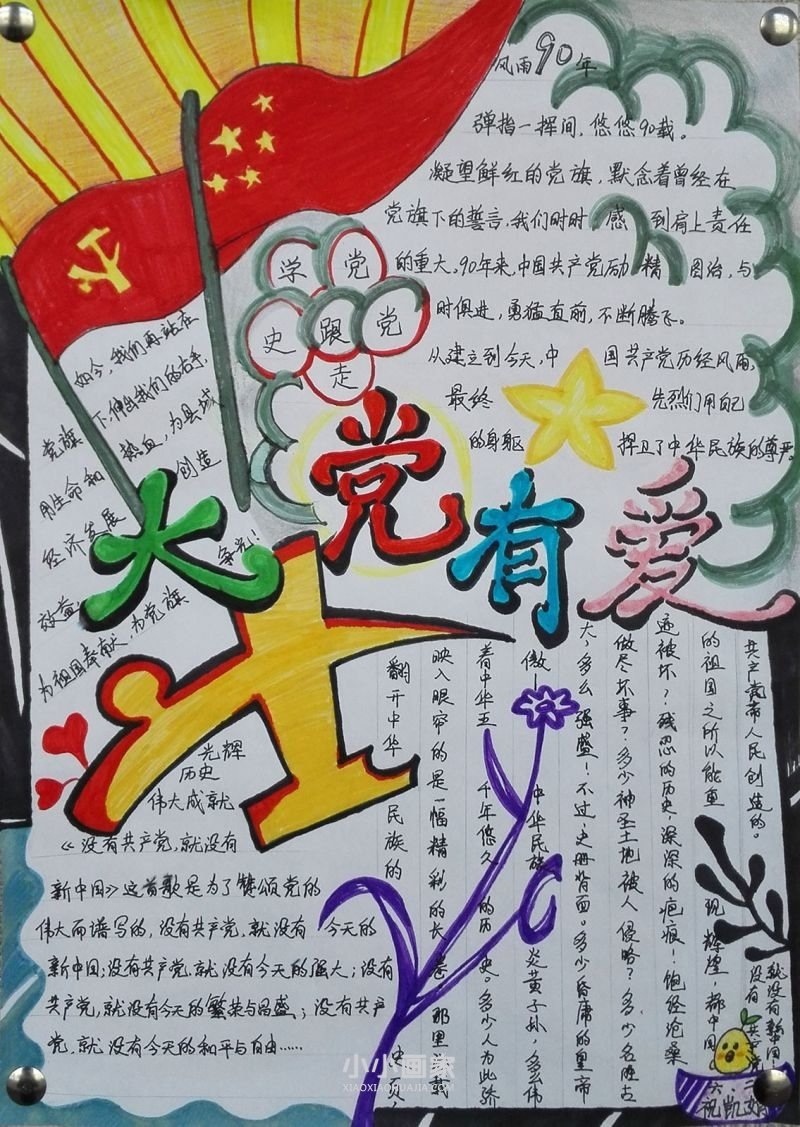 风雨90年
弹指一挥间，悠悠90载。
凝望鲜红的党旗，默念着曾经在
党旗下的誓言，我们时时感到肩上责任
的重大。90年来，中国共产党励精图治，与
时俱进，勇猛直前，不断腾飞。
从建立到今天，中国共产党历经风雨，
最终 先烈们用自己
的身躯 捍卫了中华民族的尊严。
学党
史跟党
走
如今，我们再站在
党旗下，伸出我们的右手，
用生命和热血，为县域
经济发展 创造
效益 争光！
为祖国奉献，为党旗
大党有爱
光辉
历史
伟大成就
《没有共产党，就没有
新中国》这首歌是为了赞颂党的
伟大而谱写的，没有共产党，就没有今天的
新中国；没有共产党，就没有今天的强大；没有
共产党，就没有今天的繁荣与昌盛；没有共产
党，就没有今天的和平与自由……
翻开中华民族的史页，
映入眼帘的是一幅精彩的长卷，那里记载
着中华五千年悠久的历史。多少人为此骄
傲！中华民族，炎黄子孙，多么伟
大，多么强盛！不过，史册背面。多少昏庸的皇帝
做尽坏事？多少神圣土地被人侵略？多少名胜古
迹被坏？残忍的历史，深深的疤痕！饱经沧桑
的祖国之所以能重现辉煌，都中国
共产党带人民创造的。
没有共产党
就没有新中国！
二、六
祝凯娟
小小画家
XIAOXIAOHUAJIA.COM